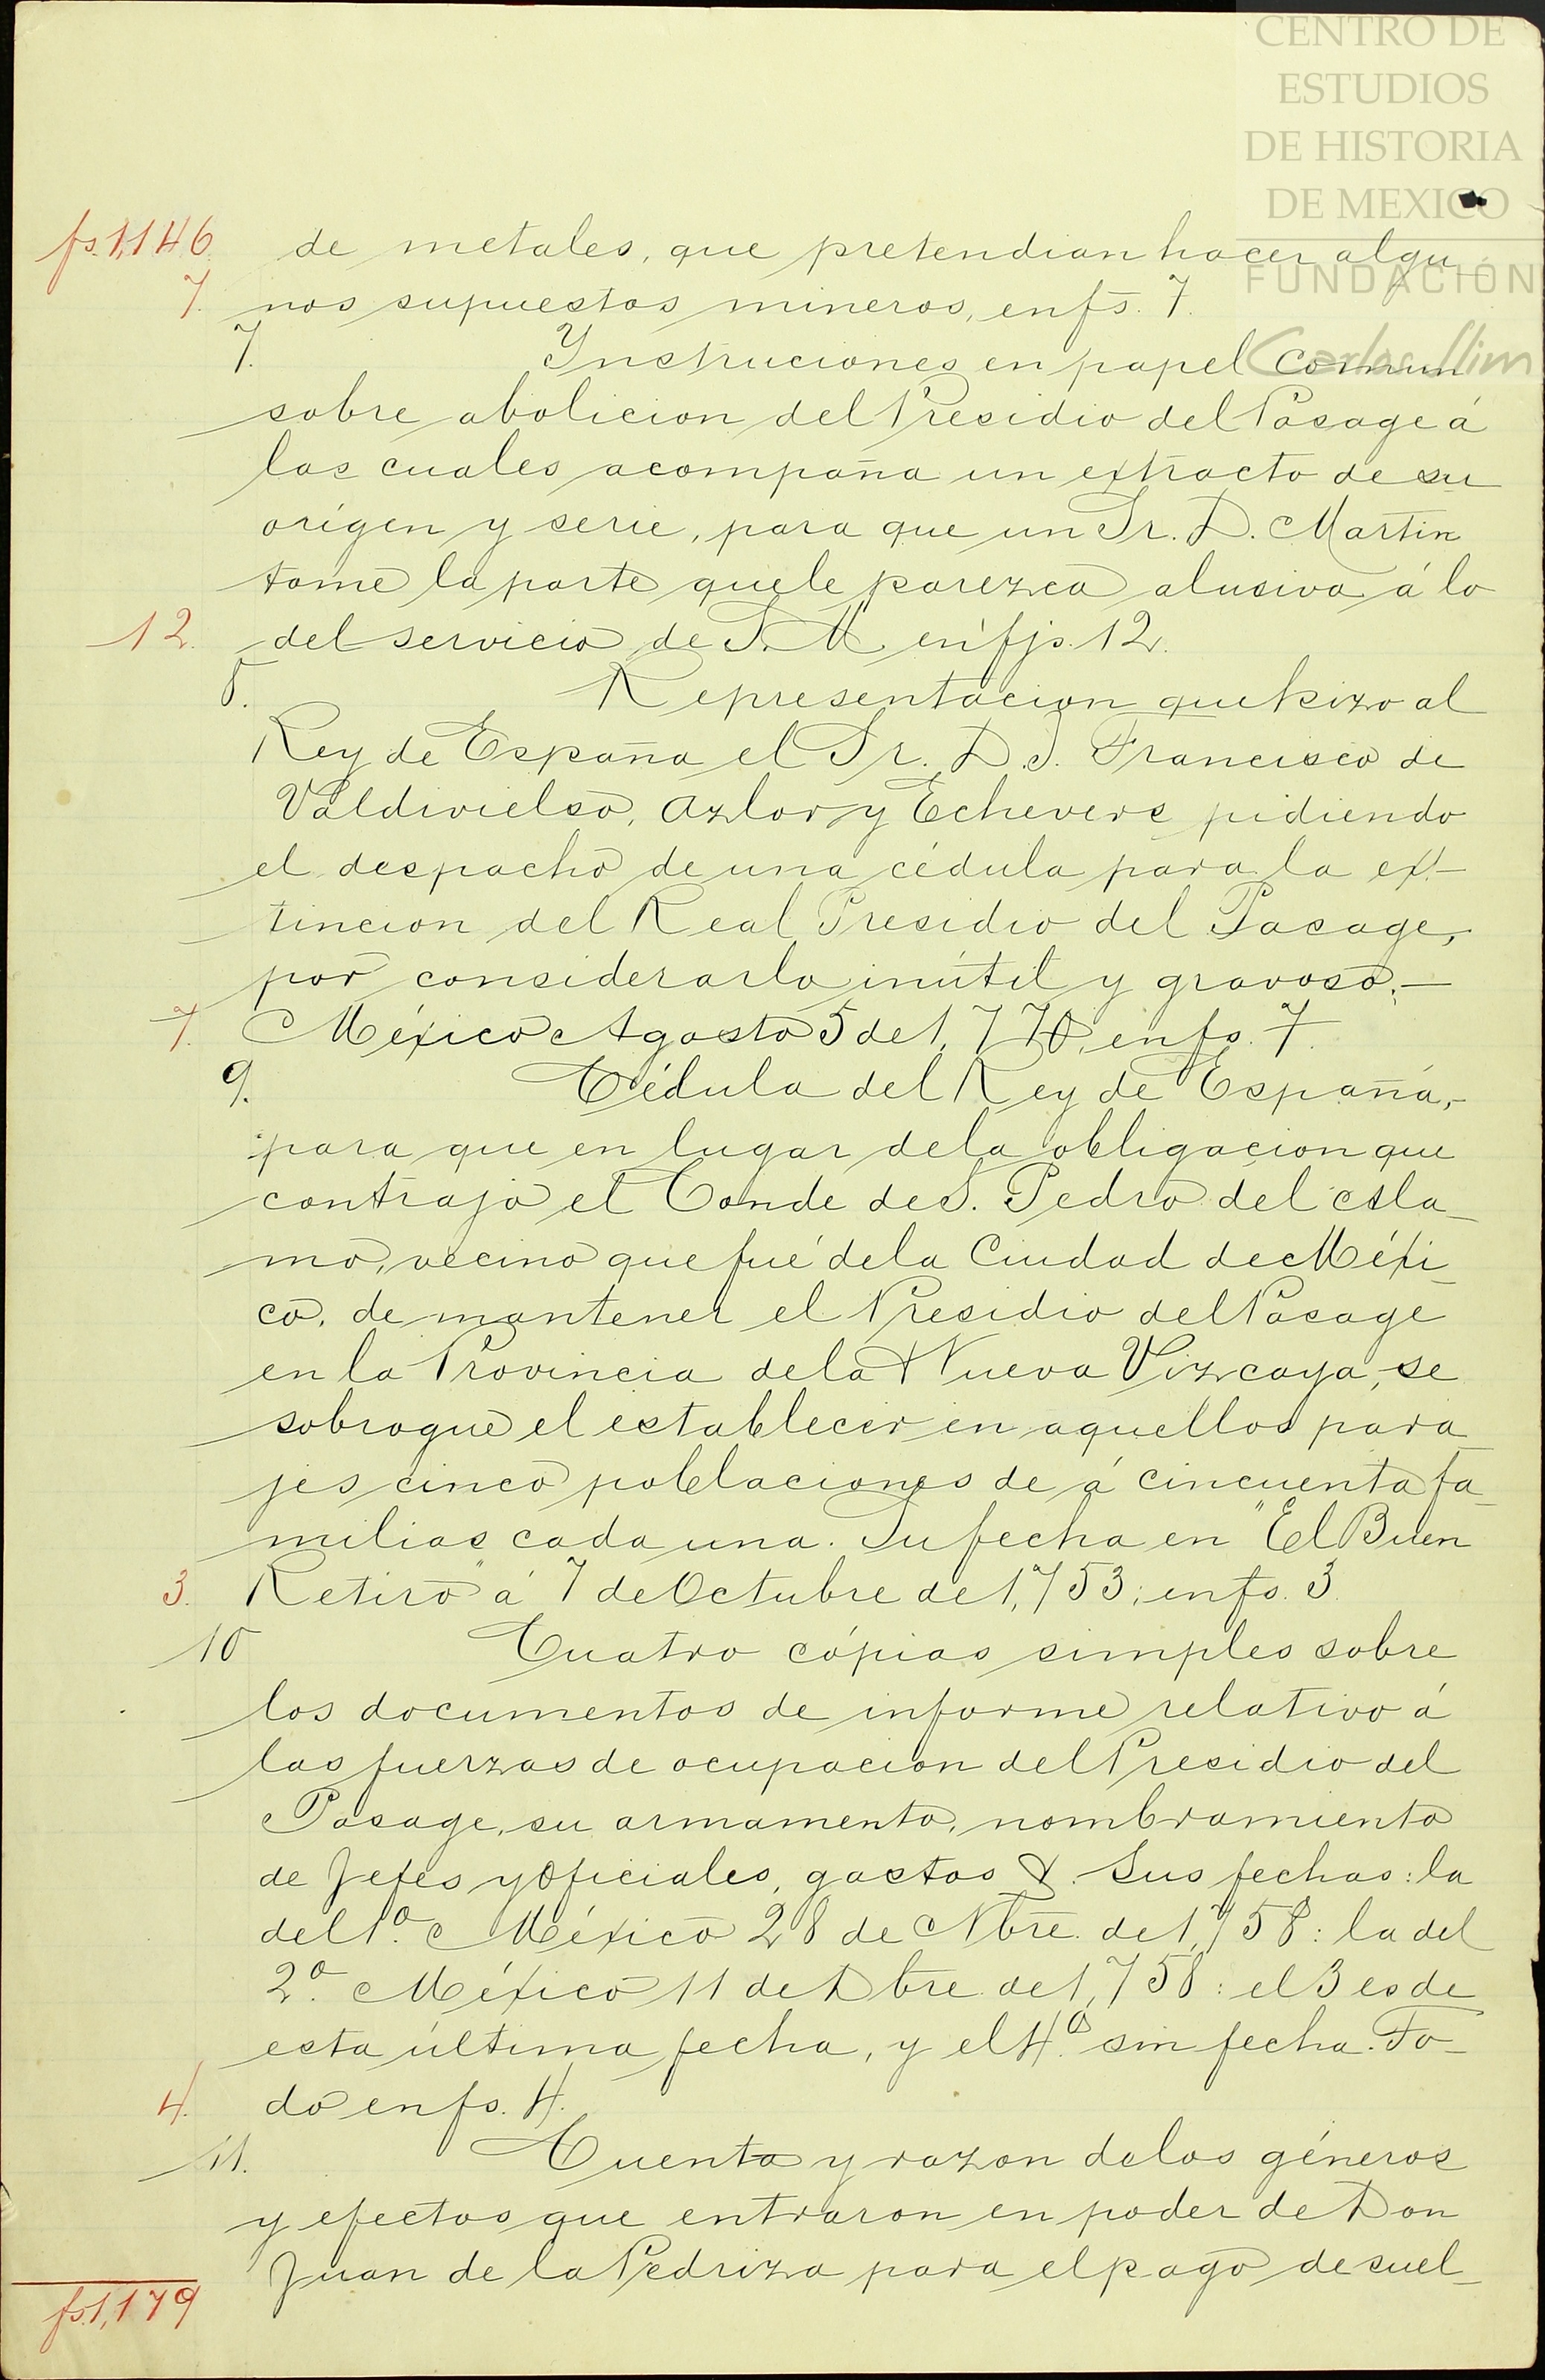 CENTRO DE
ESTUDIOS
DE HISTORIA
DE MEXICO
FUNDACIÓN
Carlos Slim
fs. 1,146. de metales, que pretendian hacer algu-
7. nos supuestos mineros, en fs. 7.
7. Instruciones en papel comun
sobre abolicion del Presidio del Pasage á
las cuales acompaña un extracto de su
orígen y serie, para que un Sr. D. Martin
tome la parte que le parezca alusiva á lo
12. del servicio de S. M. en fjs. 12.
8. Representacion que hizo al
Rey de España el Sr. D. J. Francisco de
Valdivielso, Azlor y Echevers pidiendo
el despacho de una cédula para la ex-
tincion del Real Presidio del Pasage,
por considerarlo inútil y gravoso.—
7. México Agosto 5 de 1,770, en fs. 7.
9. Cédula del Rey de España,
para que en lugar de la obligacion que
contrajo el Conde de S. Pedro del Ala-
mo, vecino que fué de la Ciudad de Méxi-
co, de mantener el Presidio del Pasage
en la Provincia de la Nueva Vizcaya, se
sobrogue el establecer en aquellos para-
jes cinco poblaciones de á cincuenta fa-
milias cada una. Su fecha en "El Buen
3. Retiro" á 7 de Octubre de 1,753; en fs. 3.
10 Cuatro cópias simples sobre
los documentos de informe relativo á
las fuerzas de ocupacion del Presidio del
Pasage, su armamento, nombramiento
de Jefes y Oficiales, gastos &. Sus fechas: la
del 1º. México 28 de Nbre. de 1,758: la del
2º. México 11 de Dbre. de 1,758: el 3 es de
esta última fecha, y el 4º. sin fecha. To-
4. do en fs. 4.
11. Cuenta y razon de los géneros
y efectos que entraron en poder de Don
Juan de la Pedriza para el pago de suel-
fs. 1,179